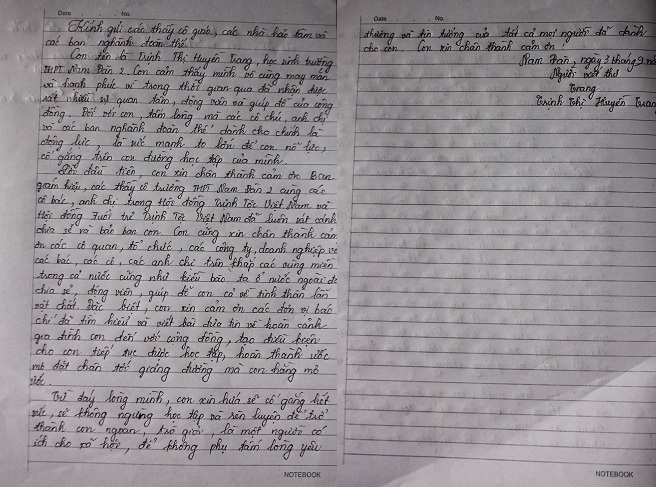 Date No.
Kính gửi các thầy cô giáo, các nhà hảo tâm và
các ban nghành đoàn thể.
Con tên là Trịnh Thị Huyền Trang, học sinh trường
THPT Nam Đàn 2. Con cảm thấy mình vô cùng may mắn
và hạnh phúc vì trong thời gian qua đã nhận được
rất nhiều sự quan tâm, động viên và giúp đỡ của cộng
đồng. Đối với con, tấm lòng mà các cô chú, anh chị
và các ban nghành đoàn thể dành cho chính là
động lực, là sức mạnh to lớn để con nỗ lực,
cố gắng trên con đường học tập của mình.
đầu tiên, con xin chân thành cảm ơn Ban
giám hiệu, các thầy cô trường THPT Nam Đàn 2 cùng các
cô bác, anh chị trong Hội đồng Trịnh Tộc Việt Nam và
Hội đồng Tuổi trẻ Trịnh Tộc Việt Nam đã luôn sát cánh
chia sẻ và bảo ban con. Con cũng xin chân thành cảm
ơn các cơ quan, tổ chức, các công ty, doanh nghiệp và
các bác, các cô, các anh chị trên khắp các vùng miền
trong cả nước cũng như kiều bào ta ở nước ngoài đã
chia sẻ, động viên, giúp đỡ con cả về tinh thần lẫn
vật chất. Đặc biệt, con xin cảm ơn các đơn vị báo
chí đã tìm hiểu và viết bài đưa tin về hoàn cảnh
gia đình con đến với cộng đồng, tạo điều kiện
cho con tiếp tục được học tập, hoàn thành ước
mơ đặt chân tới giảng đường mà con hằng mơ
ước.
Từ đáy lòng mình, con xin hứa sẽ cố gắng hết
sức, sẽ không ngừng học tập và rèn luyện để trở
thành con ngoan, trò giỏi, là một người có
ích cho xã hội, để không phụ tấm lòng yêu
NOTEBOOK
Date No.
thương và tin tưởng của tất cả mọi người đã dành
cho con. Con xin chân thành cảm ơn!
Nam Đàn, ngày 3 tháng 9
Người viết thư
Trang
Trịnh Thị Huyền Trang
NOTEBOOK